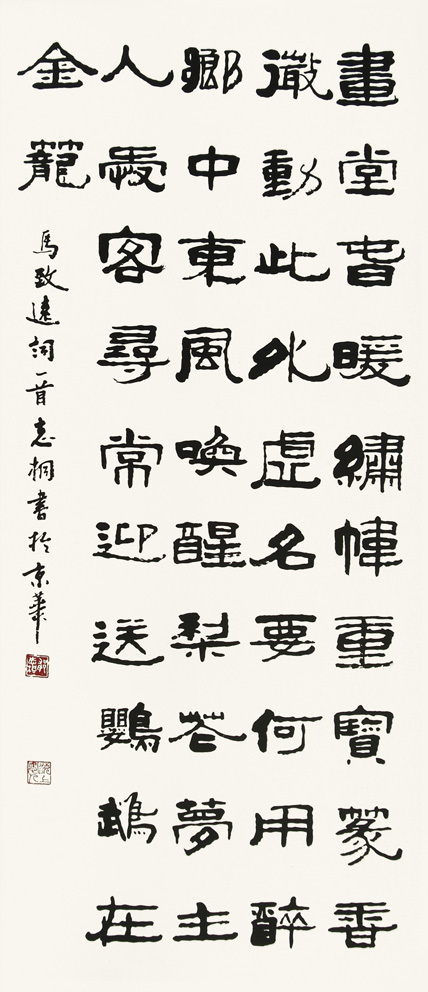 畫堂春暖繡幃重寶篆香
微動此外虛名要何用醉
鄉中東風喚醒梨花夢主
人愛客尋常迎送鸚鵡在
金籠
馬致遠詞一首志桐書於京華